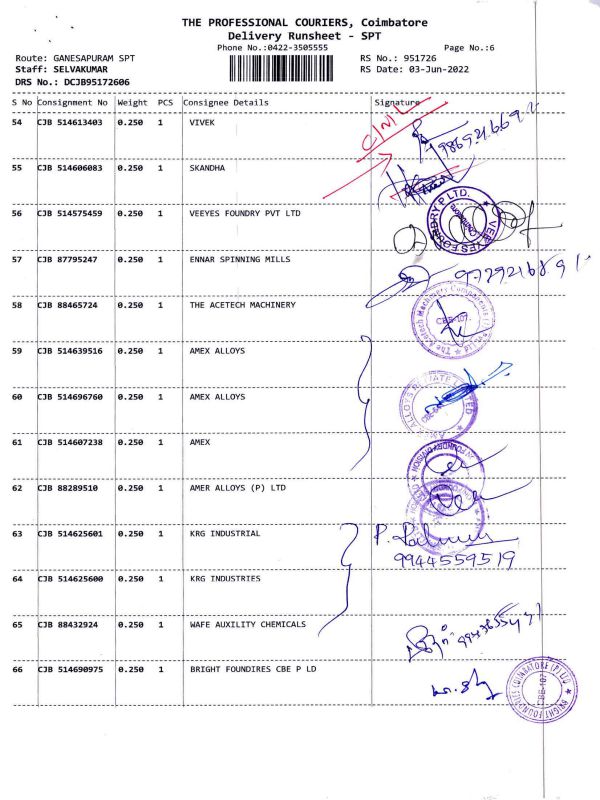 THE PROFESSIONAL COURIERS, Coimbatore
Delivery Runsheet - SPT
Phone No.:0422-3505555 Page No.:6
Route: GANESAPURAM SPT RS No.: 951726
Staff: SELVAKUMAR RS Date: 03-Jun-2022
DRS No.: DCJB95172606
S No Consignment No Weight PCS Consignee Details Signature
54 CJB 514613403 0.250 1 VIVEK
55 CJB 514606083 0.250 1 SKANDHA
56 CJB 514575459 0.250 1 VEEYES FOUNDRY PVT LTD
57 CJB 87795247 0.250 1 ENNAR SPINNING MILLS
58 CJB 88465724 0.250 1 THE ACETECH MACHINERY
59 CJB 514639516 0.250 1 AMEX ALLOYS
60 CJB 514696760 0.250 1 AMEX ALLOYS
61 CJB 514607238 0.250 1 AMEX
62 CJB 88289510 0.250 1 AMER ALLOYS (P) LTD
63 CJB 514625601 0.250 1 KRG INDUSTRIAL
9944559519
64 CJB 514625600 0.250 1 KRG INDUSTRIES
65 CJB 88432924 0.250 1 WAFE AUXILITY CHEMICALS
66 CJB 514690975 0.250 1 BRIGHT FOUNDIRES CBE P LD